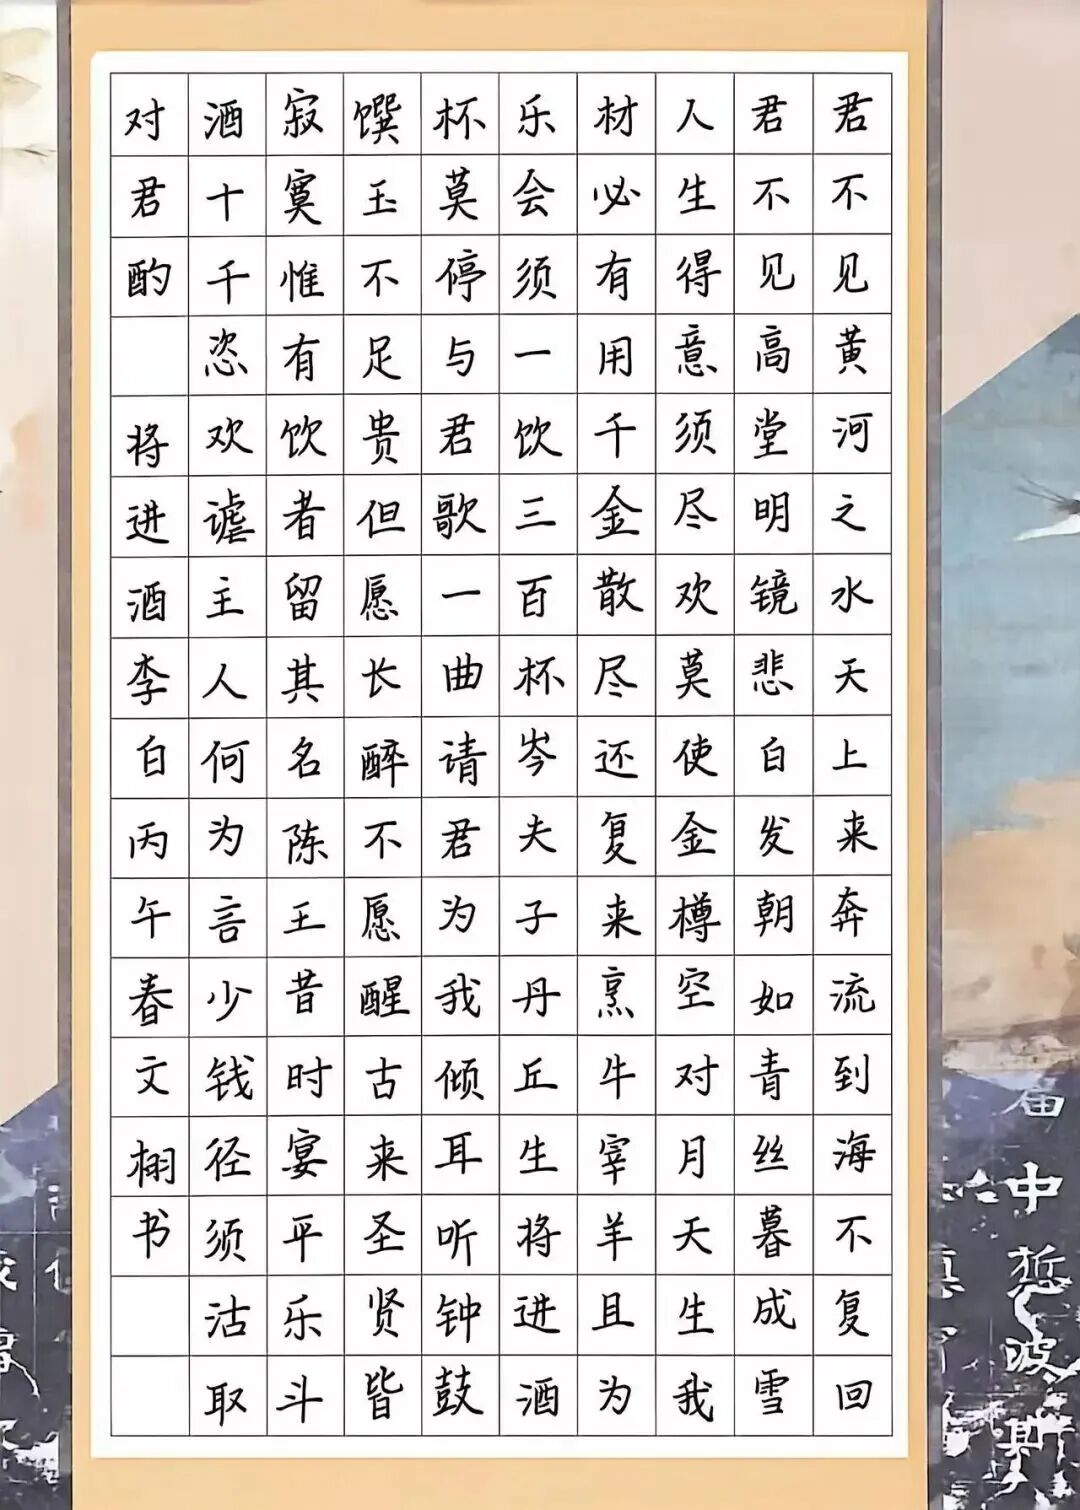 君不见黄河之水天上来奔流到海不复回
君不见高堂明镜悲白发朝如青丝暮成雪
人生得意须尽欢莫使金樽空对月天生我
材必有用千金散尽还复来烹牛宰羊且为
乐会须一饮三百杯岑夫子丹丘生将进酒
杯莫停与君歌一曲请君为我倾耳听钟鼓
馔玉不足贵但愿长醉不愿醒古来圣贤皆
寂寞惟有饮者留其名陈王昔时宴平乐斗
酒十千恣欢谑主人何为言少钱径须沽取
对君酌 将进酒李白丙午春文栩书
中惁波斯